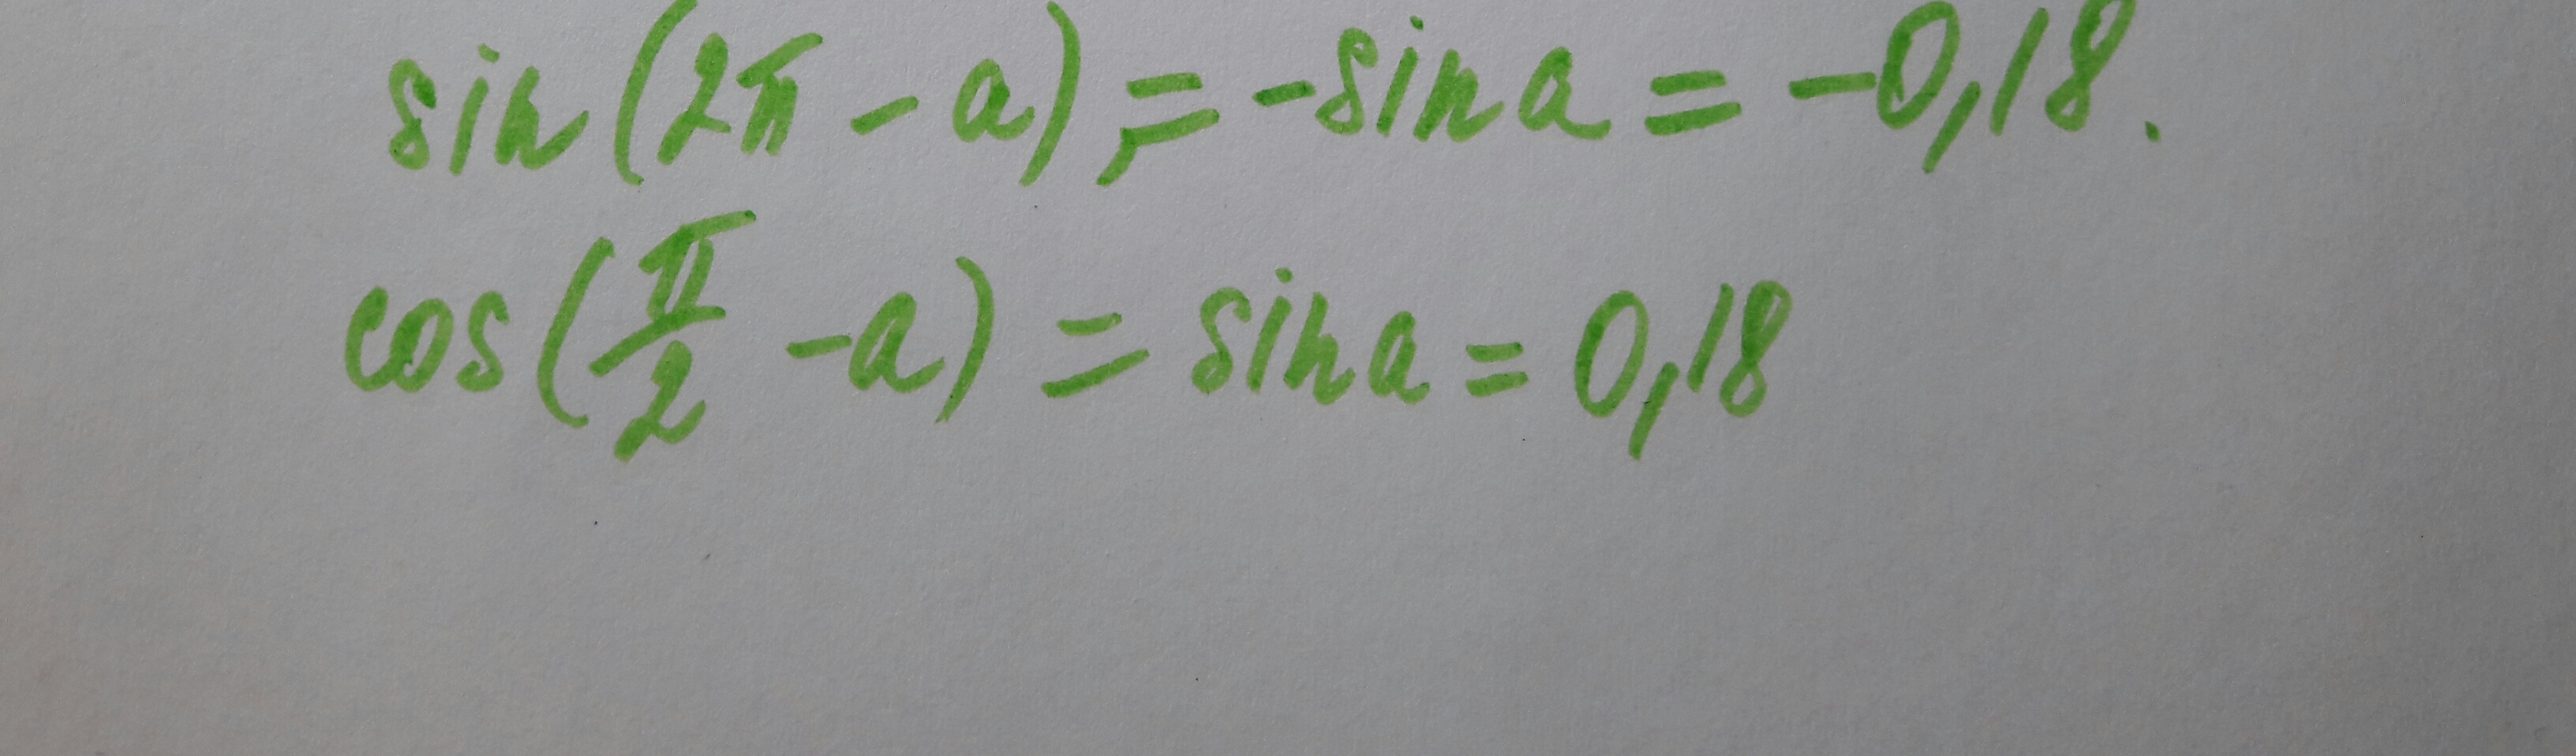 sin(2π - a), = -sin a = -0,18.
cos(π/2 - a) = sin a = 0,18